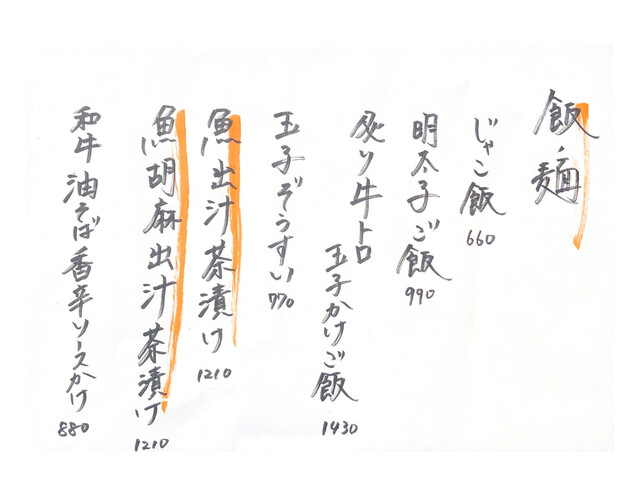 飯・麺
じゃこ飯
660
明太子ご飯
990
炙り牛トロ
玉子かけご飯
1430
玉子ぞうすい
770
魚出汁茶漬け
1210
魚胡麻出汁茶漬け
1210
和牛油そば香辛ソースかけ
880